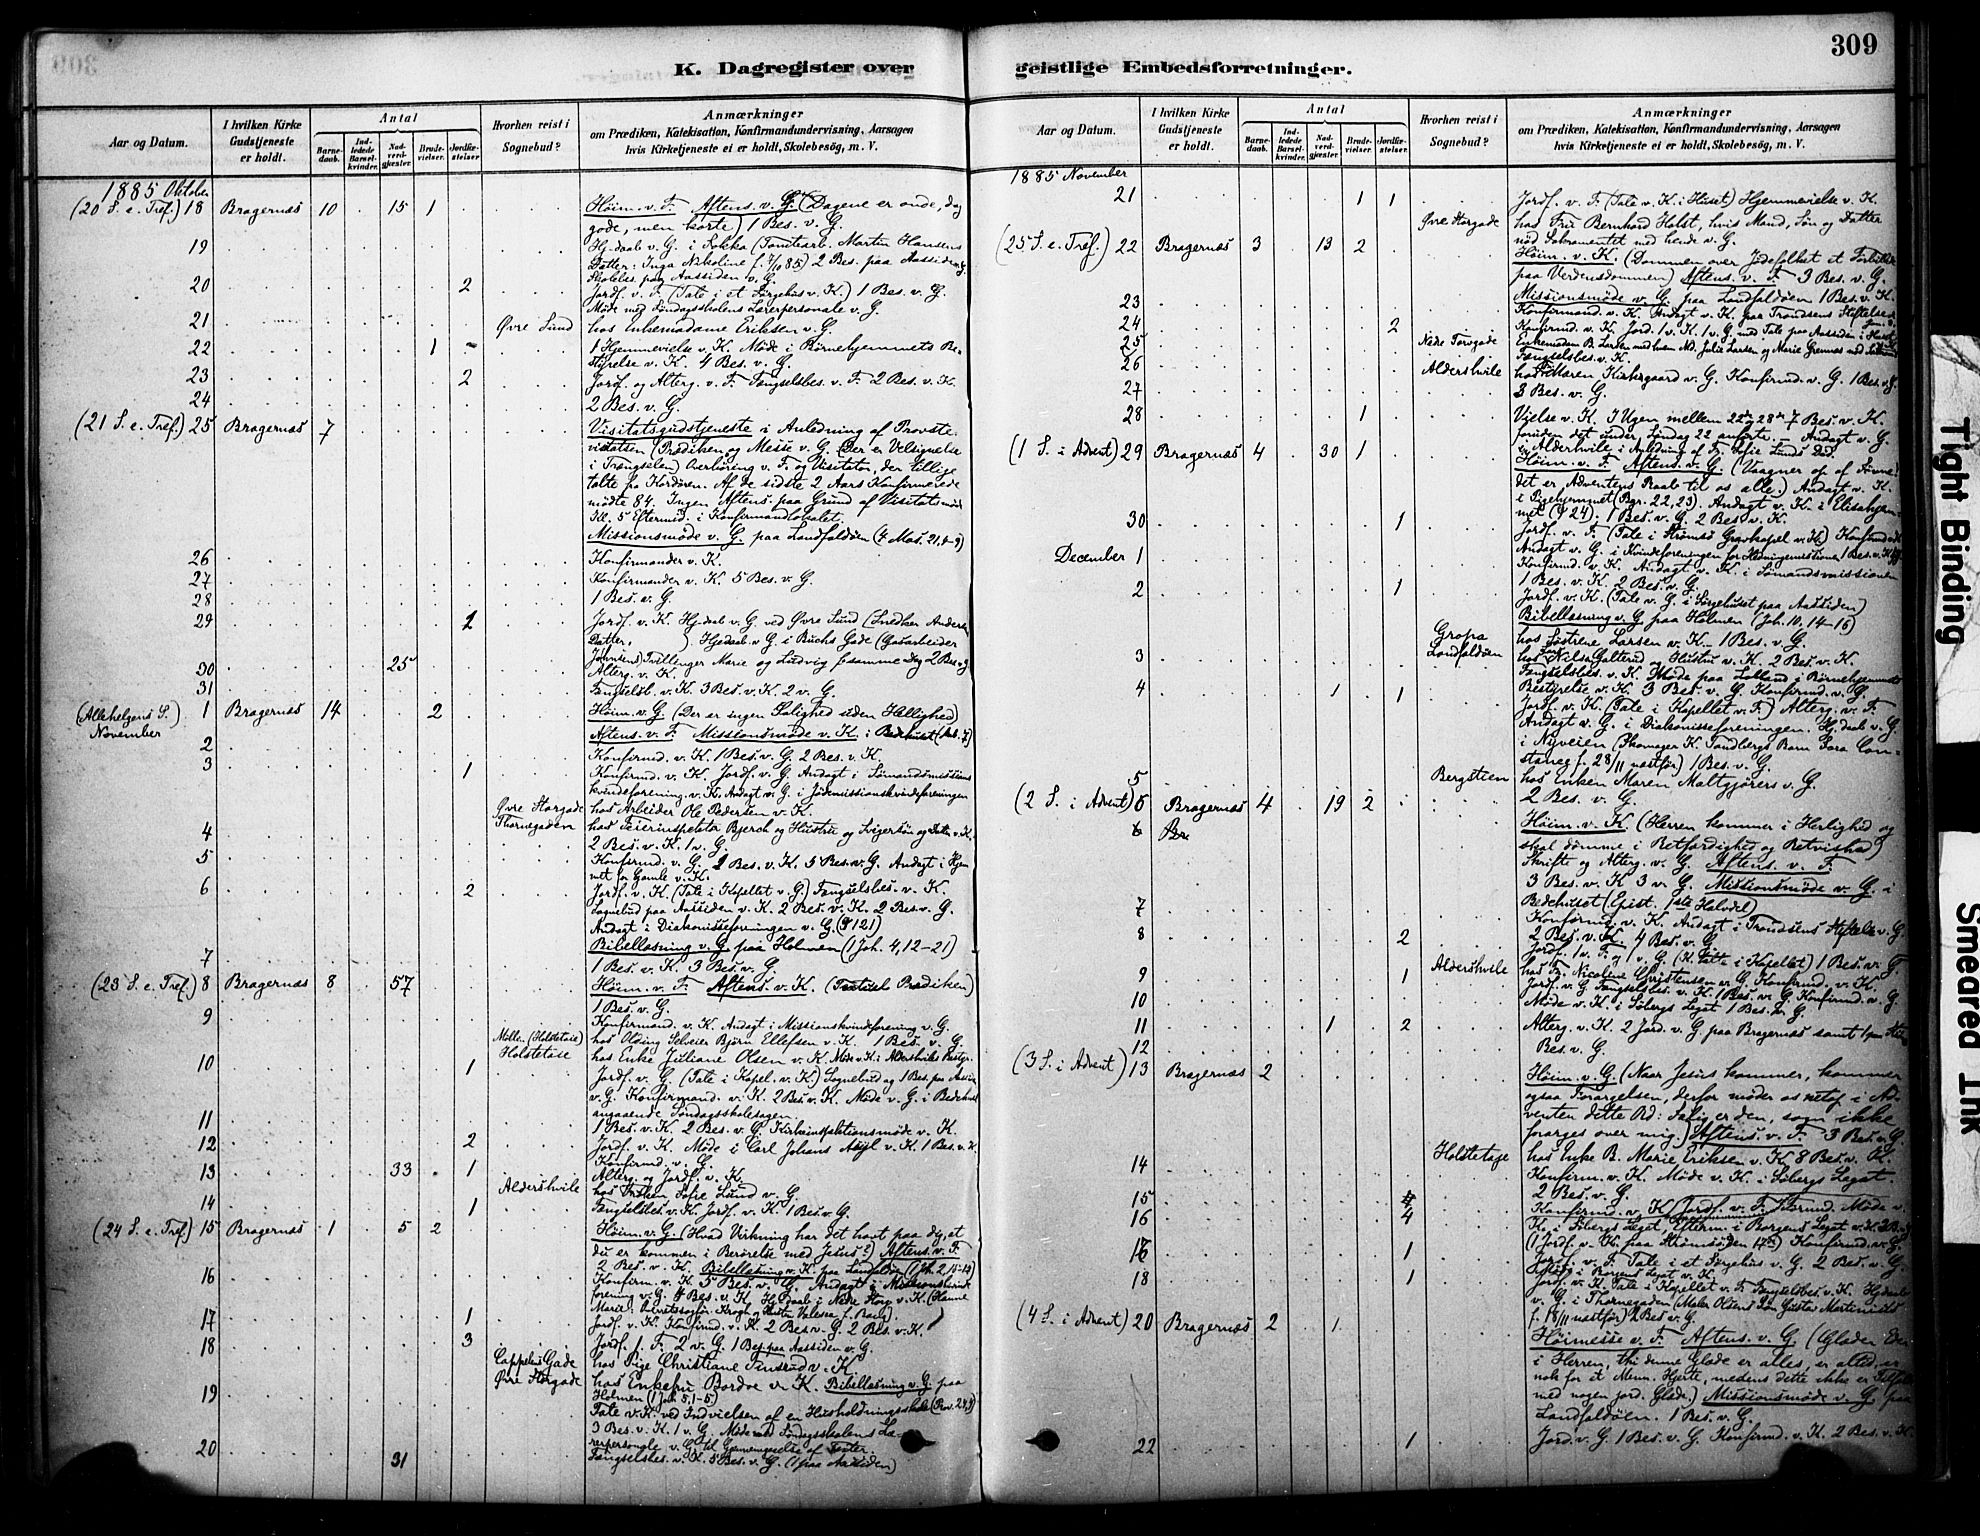 309
K. Dagregister over geistlige Embedsforretninger.
Aar og Datum.
I hvilken Kirke Gudstjeneste er holdt.
Antal
Barnedaab.
Indledede Barselkvinder.
Nadverdgjæster
Brudevielser.
Jordfæstelser
Hvorhen reist i Sognebud?
Anmærkninger
om Prædiken, Katekisation, Konfirmandundervisning, Aarsagen
hvis Kirketjeneste ei er holdt, Skolebesög, m. V.
1885 Oktober
(20 S. e. Tref.) 18 Bragernæs 10 15 1 Høim. v. F. Aftens. v. G. (Dagene er onde, dog
gode, men korte) 1 Bes. v. G.
19 Hj.daab v. G. i Solka (Tomtearb. Martin Hansens
Datter: Inga Nikoline f. 7/10 85) 2 Bes. paa Aassiden v. G.
Skolebes. paa Aassiden v. G.
20 2 Jordf. v. F. (Tale i et Sørgehus v. K.) 1 Bes. v. G.
Møde med Søndagsskolens Lærerpersonale v. G.
21 Øvre Sund hos Enkemadame Eriksen v. G.
22 1 1 Hjemmevielse v. K. Møde i Børnehjemmets Be-
styrelse v. K. 4 Bes. v. G.
23 2 Jordf. og Alterg. v. F. Fængselsbes. v. F. 2 Bes. v. K.
24 2 Bes. v. G.
(21 S. e. Tref.) 25 Bragernæs 7 Visitatsgudstjeneste i Anledning af Provste-
visitatsen (Prædiken og Messe v. G. (Der er Velsignelse
i Trængselen) Overhøring v. F. og Visitator, der tillige
talte fra Kordøren. Af de sidste 2 Aars Konfirmerede
mødte 84. Ingen Aftens. paa Grund af Visitatsmøde
Kl. 5 Eftermid. i Konfirmandlokalet.
Missionsmøde v. G. paa Landfaldøen (4 Mos. 21, 4-9)
26 Konfirmander v. K.
27 Konfirmander v. K. 5 Bes. v. G.
28 1 Bes. v. G.
29 2 Jordf. v. K. Hj.daab v. G. ved Øvre Sund (Snedker Andersens
Datter, ) Hj.daab v. G. i Buchs Gade (Gasarbeider
Johnsens) Tvillinger Marie og Ludvig f. samme Dag 2 Bes. v. G.
30 25 Alterg. v. K.
31 Fængselsb. v. K. 3 Bes. v. K. 2 v. G.
(Allehelgens S.) 1 Bragernæs 14 2 Høim. v. G. (Der er ingen Salighed uden Hellighed)
November Aftens. v. F. Missionsmøde v. K. i Bedehuset
2 Konfirmd. v. K. 1 Bes. v. G. 2 Bes. v. K.
3 1 Konfirmd. v. K. Jordf. v. G. Andagt i Sømandsmissions
kvindeforening. v. K. Andagt v. G. i Jødemissionskvindeforeningen
Øvre Storgade hos Arbeider Ole Pedersen v. K.
Thornegaden hos Feierinspektør Bjerch og Hustru og Svigersøn og Datter v. K.
4 2 Bes. v. K. 1 v. G.
5 Konfirmd. v. G. 2 Bes. v. K. 5 Bes. v. G. Andagt i Hjem
met for Gamle v. K.
6 2 Jordf. v. K. (Tale i Kapellet v. G.) Fængselsbes. v. K.
Sognebud paa Aassiden v. K. 2 Bes. v. K. 2 Bes. v. G.
Andagt i Diakonisseforeningen v. G. (ψ 121)
Bibellæsning v. G. paa Holmen (1 Joh. 4, 12-21)
7 1 Bes. v. K. 3 Bes. v. G.
(23 S. e. Tref.) 8 Bragernæs 8 57 Høim. v. F. Aftens. v. K. (Textuel Prædiken)
1 Bes. v. G.
9 Konfirmand. v. K. Andagt i Missionskvindeforening v. G.
Møllen (Holstetaje) hos Olding Selveier Bjørn Ellefsen v. K. 1 Bes. v. G.
Holstetaje hos Enke Juliane Olsen v. K.
10 1 Jordf. v. G. (Tale i Kapel. v. K.) Sognebud og 1 Bes. paa Aassiden
v. G. Konfirmand. v. K. 2 Bes. v. K. Møde v. G. i Bedehuset
angaaende Søndagsskolesagen.
11 1 Bes. v. K. 2 Bes. v. G.
12 2 Jordf. v. K. Møde i Carl Johans Asyl v. K. 1 Bes. v. K.
Konfirmd. v. G.
13 33 1 Alterg. og Jordf. v. K.
Aldershvile hos Frøken Sofie Lund v. G.
14 1 Fængselsbes. v. K. Jordf. v. K. 1 Bes. v. G.
(24 S. e. Tref.) 15 Bragernæs 1 5 2 Høim. v. G. (Hvad Virkning har det havt paa dig, at
du er kommen i Berørelse med Jesus?) Aftens. v. F.
2 Bes. v. K. Bibellæsning v. K. paa Landfaldøen
16 Konfirm. v. K. 5 Bes. v. G. Andagt i Missionskvinde
forening v. G. 4 Bes. v. K. Hj.daab i Nedre Storg. v. K. (Hanne
17 1 Jordf. v. K. Konfirmd. v. K. 2 Bes. v. G. 2 Bes. v. K.
18 3 Jordf. 1 F. 2 v. G. 1 Bes. paa Aassiden v. G.
Cappelens Gade hos Pige Christiane Finsrud v. K.
Øvre Storgade hos Enkefru Bordoe v. K. Bibellæsning v. G. paa
19 Holmen (1 Joh. 5, 1-5)
Tale v. K. ved Indvielsen af en Husholdningsskole
3 Bes. v. K. 1 v. G. Møde med Søndagsskolens Læ-
rerpersonale v. G. til Gjennemgaaelse af Texter.
20 31 Fængselsbes. v. K. 5 Bes. v. G. (1 paa Aassiden)
Aar og Datum.
I hvilken Kirke Gudstjeneste er holdt.
Antal
Barnedaab.
Indledede Barselkvinder.
Nadverdgjæster
Brudevielser.
Jordfæstelser.
Hvorhen reist i Sognebud?
Anmærkninger
om Prædiken, Katekisation, Konfirmandundervisning, Aarsagen
hvis Kirketjeneste ei er holdt, Skolebesög, m. V.
1885 November
21 1 1 Jordf. v. F. (Tale v. K. i Huset) Hjemmevielse v. K.
Øvre Storgade hos Fru Bernhard Holst, hvis Mand, Søn og Datter
nød Sakramentet med hende v. G.
(25 S. e. Tref.) 22 Bragernæs 3 13 2 Høim. v. K. (Dommen over Jødefolket et Forbillede
paa Verdensdommen) Aftens. v. F. 3 Bes. v. G.
Missionsmøde v. G. paa Landfaldøen 1 Bes. v. K.
23 Konfirmand. v. K. Andagt v. K. paa Trondsens Stiftelse
24 2 Konfirmd. v. K. Jord. 1 v. K. 1 v. G. med Tale paa Aassiden i Huset
25 Nedre Torvgade Enkemadam B. Larsen med hven Md. Julie Larsen og Marie Grennes
26 Fængselsbes. v. K.
Aldershvile hos Maren Kirkegaard v. G. Konfirmd. v. G. 1 Bes. v. G.
27 3 Bes. v. G.
28 1 Vielse v. K. I Ugen mellem 22de 28de 7 Bes. v. K.
foruden det under Søndag 22 anførte. Andagt v. G.
paa Aldershvile i Anledning af Fr. Sofie Lunds Død
(1 S. i Advent) 29 Bragernæs 4 30 1 Høim. v. F. Aftens. v. G. (Vaagner op af Søvne!
det er Adventens Raab til os alle.) Andagt v. K.
i Pigehjemmet (Bgr. 22, 23). Andagt v. K. i Elisehjem-
met (ψ 24). 1 Bes. v. G. 2 Bes. v. K.
30 1 Jordf. v. F. (Tale i Strømsø Gravkapel v. K.)
Andagt v. G. i Kvindeforeningen for Hedningemissionen 1 Bes. v. K.
December 1 Konfirmd. v. K. Andagt v. K. i Sømandsmissionen
1 Bes. v. K. 2 Bes. v. G.
2 1 Jordf. v. K. (Tale v. G. i Sørgehuset paa Aassiden)
Bibellæsning v. G. paa Holmen (Joh. 10, 14-16)
Gropa hos Søstrene Larsen v. K. 1 Bes. v. G.
3 Landfaldøen hos Nilsen Galterud og Hustru v. K. 2 Bes. v. K.
Fængselsbes. v. K. Møde paa Lolland i Børnehjemmets
Bestyrelse v. K. 3 Bes. v. G. Konfirmd. v. G.
4 1 1 Jordf. v. K. (Tale i Kapellet v. F.) Alterg. v. F.
Andagt v. G. i Diakonisseforeningen. Hj.daab v. G.
i Nyveien (Skomager K. Sandbergs Barn Sara Con-
stance f. 28/11 nattfør) 1 Bes. v. G.
5 Bergstien hos Enken Maren Maltgjørers v. G.
2 Bes. v. G.
(2 S. i Advent) 6 Bragernæs 4 19 2 Høim. v. K. (Herren kommer i Herlighed og
6 Bra skal dømme i Retfærdighed og Retvished)
Skrifte og Alterg. v. G. Aftens. v. F.
3 Bes. v. K 3 v. G. Missionsmøde v. G. i
Bedehuset (Epist. 1ste Halvdel)
7 Konfirmd. v. K. Andagt i Trondsens Stiftelse v. G.
2 Bes. v. K. 4 Bes. v. G.
8 2 Jordf. 1 v. F. og 1 v. G. (K. talte i Kapellet) 1 Bes. v. G
Aldershvile hos Fr. Nicoline Christensen v. G. Konfirmd. v. K.
9 1 Jordf. v. G. Fængselsbes. v. K. 1 Bes. v. G. Konfirmd. v. G.
10 Møde v. K. i Søbergs Legat 1 Bes. v. G.
11 1 2 Alterg. v. K. 2 Jord. v. G. paa Bragernæs samt 1 paa
12 Bes. v. G.
(3 S. i Advent) 13 Bragernæs 2 Høim. v. G. (Naar Jesus kommer, kommer
ogsaa Forargelsen, derfor møder os netop i Ad-
venten dette Ord: Salig er den, som ikke
forarges over mig.) Aftens. v. F. 3 Bes. v. G.
14 Holstetage hos Enke B. Marie Eriksen v. K 8 Bes. v. K.
Konfirm. v. K. Møde v. K. i Søbergs Legat.
15 2 Bes. v. G.
16 4 Konfirmd. v. K. Jordf. v. F. Møde v.
K. i Søbergs Legat, Efterm. i Borgens Legat v. K.
(1 Jordf. v. K. paa Strømsøsiden) Konfirmd. v. G.
16 1 Jordf. v. F. Tale i et Sørgehus v. G. 2 Bes. v. G.
18 1 Jordf. v. K. Tale i Kapellet v. F. Fængselsbes. v. K. Hj.daab
v. G. i Thornegaden (Maler Olsens Søn Gustav Martinius
f. 18/11 nattfør) 2 Bes v. G.
(4 S. i Advent) 20 Bragernæs 2 1 Høimesse v. F. Aftens. v. G. (Glæden Eder
i Herren, thi denne Glæde er alles, er altid, er
nok for et Menn. Hjerte, medens dette ikke er Tilfældet
med nogen jord. Glæde.) Missionsmøde v. G. paa
Landfaldøen. 1 Bes. v. G.
22 1 Jord. v. G. 1 Bes. v. G. Konfirmd. v. K. 2 Bes. v. K.
Tight Binding
Smeared Ink